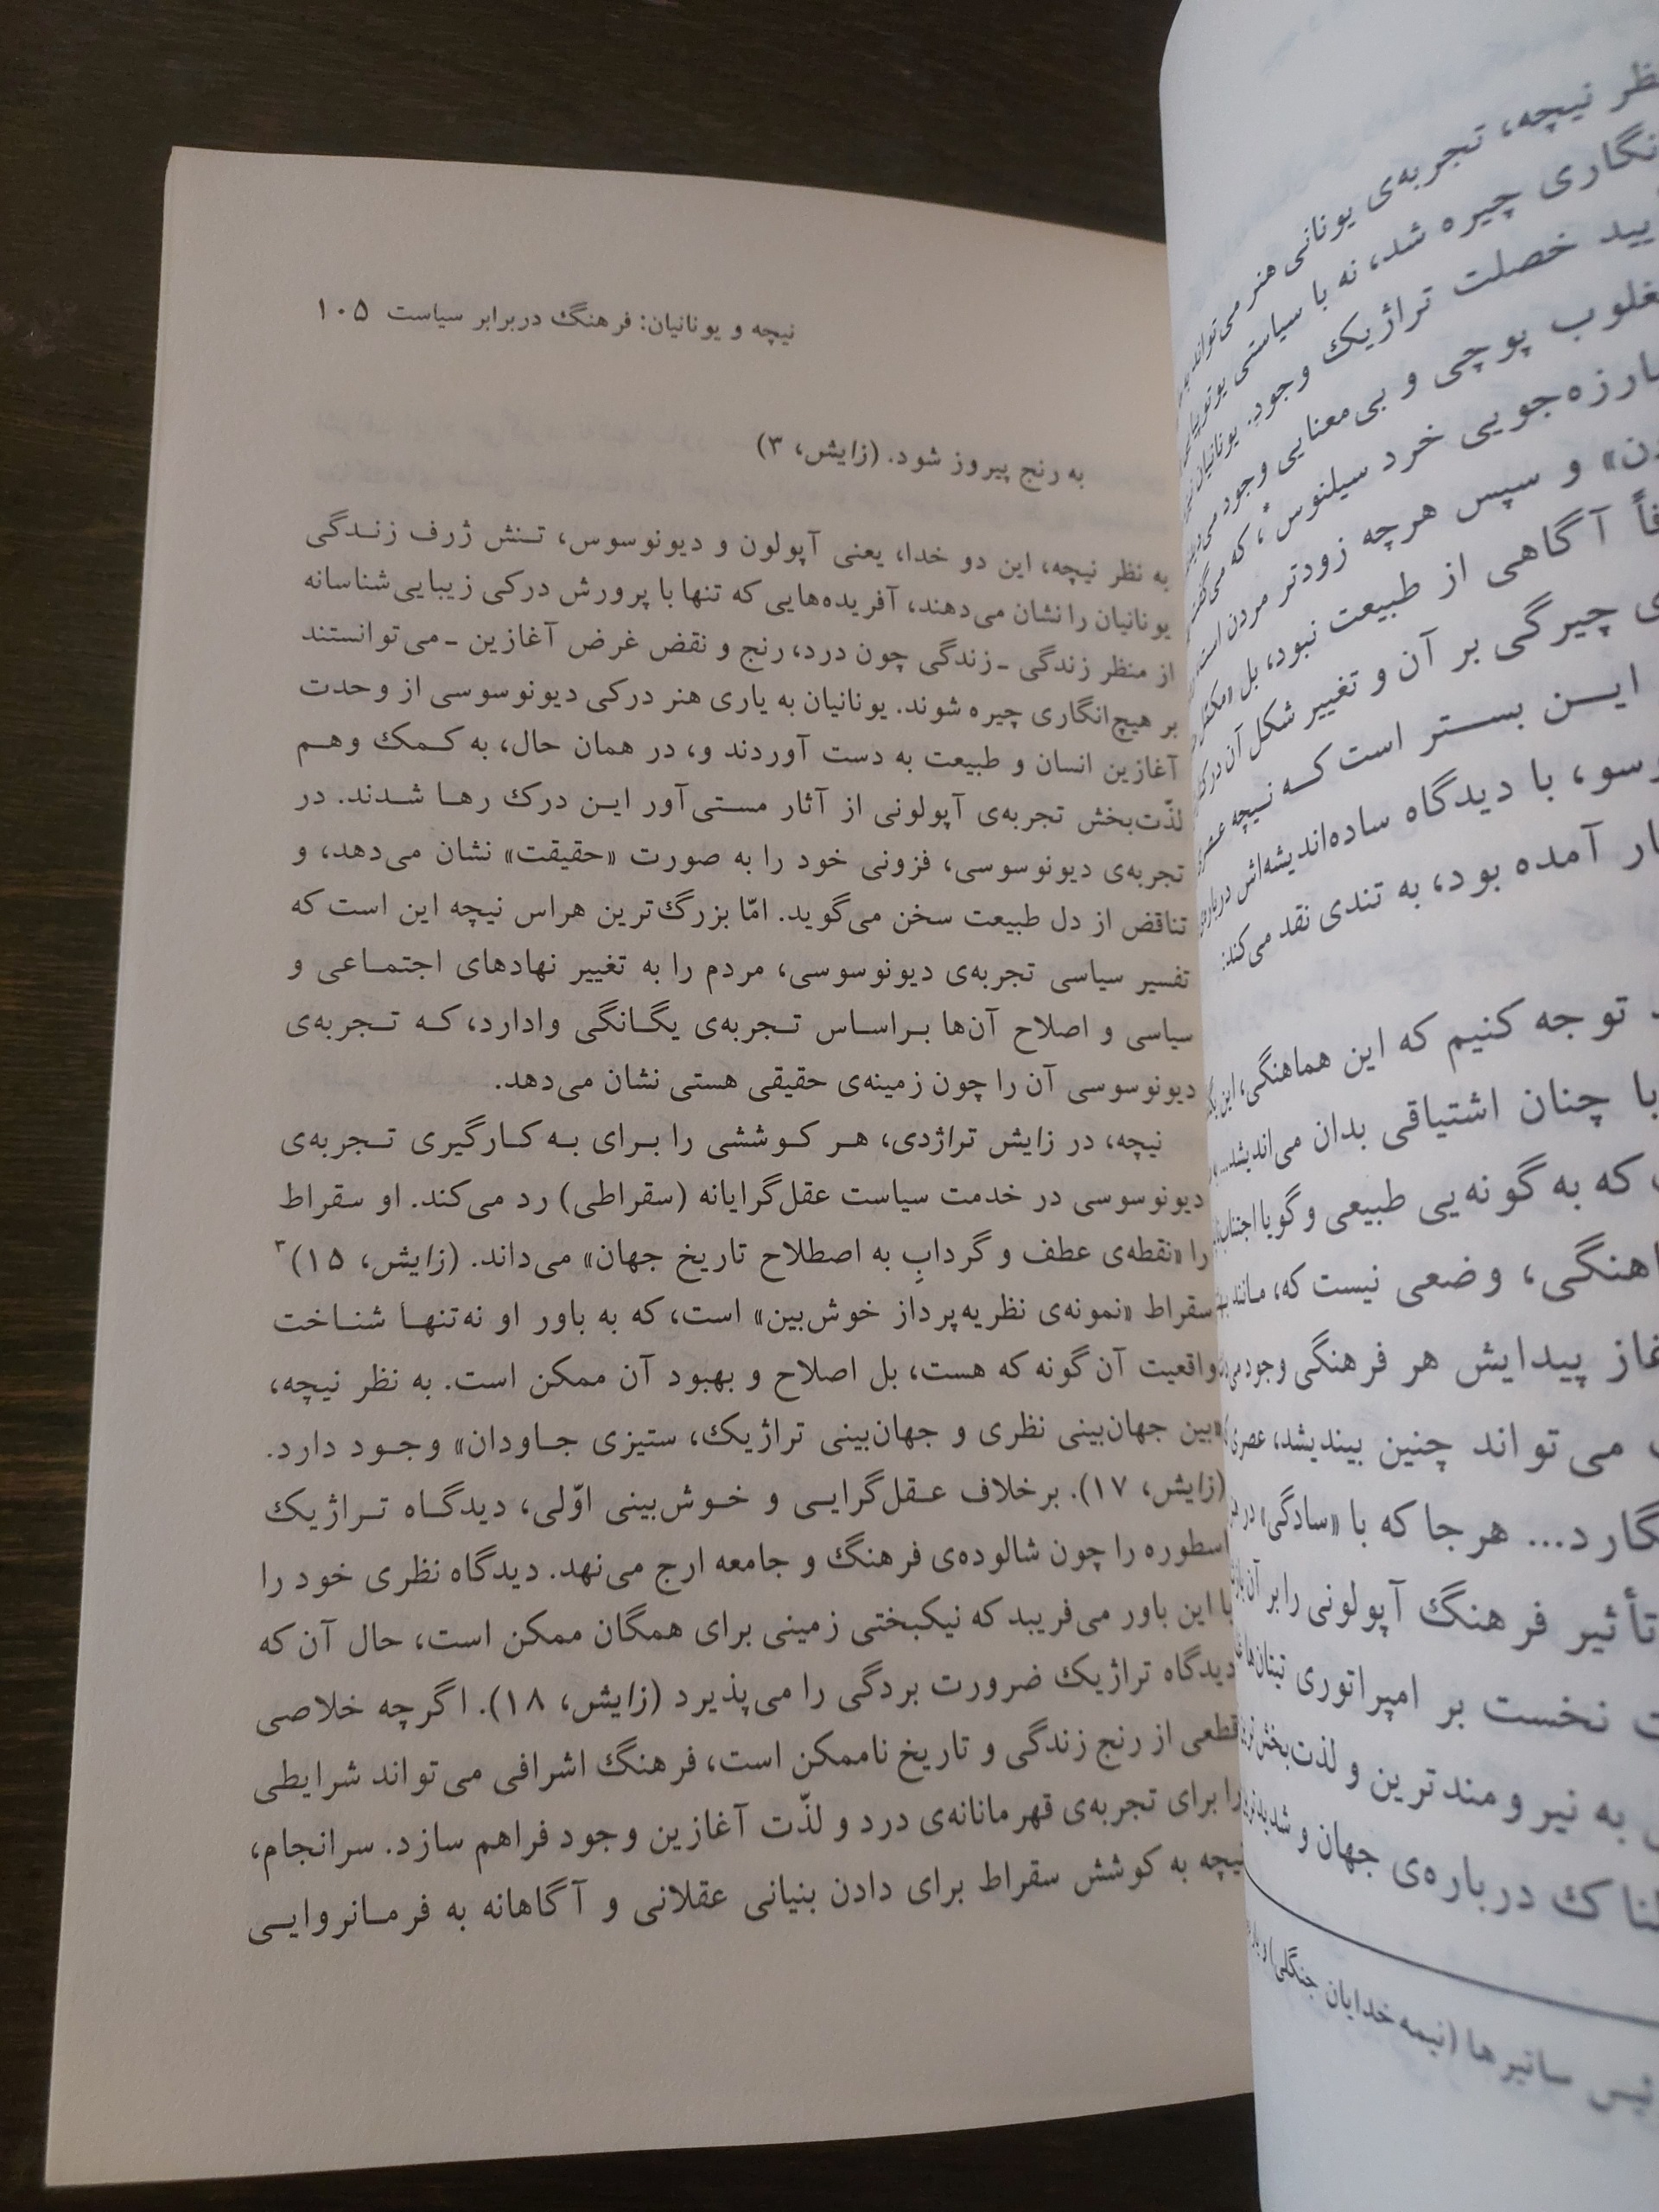 نیچه و یونانیان: فرهنگ دربرابر سیاست ۱۰۵
به رنج پیروز شود. (زایش، ۳)
به نظر نیچه، این دو خدا، یعنی آپولون و دیونوسوس، تنش ژرف زندگی
یونانیان را نشان می‌دهند، آفریده‌هایی که تنها با پرورش درکی زیبایی‌شناسانه
از منظر زندگی ـ زندگی چون درد، رنج و نقض غرض آغازین ـ می‌توانستند
بر هیچ‌انگاری چیره شوند. یونانیان به یاری هنر درکی دیونوسوسی از وحدت
آغازین انسان و طبیعت به دست آوردند و، در همان حال، به کمک وهم
لذّت‌بخش تجربه‌ی آپولونی از آثار مستی‌آور این درک رها شدند. در
تجربه‌ی دیونوسوسی، فزونی خود را به صورت «حقیقت» نشان می‌دهد، و
تناقض از دل طبیعت سخن می‌گوید. امّا بزرگ‌ترین هراس نیچه این است که
تفسیر سیاسی تجربه‌ی دیونوسوسی، مردم را به تغییر نهادهای اجتماعی و
سیاسی و اصلاح آن‌ها براساس تجربه‌ی یگانگی وادارد، که تجربه‌ی
دیونوسوسی آن را چون زمینه‌ی حقیقی هستی نشان می‌دهد.
نیچه، در زایش تراژدی، هر کوششی را برای به کارگیری تجربه‌ی
دیونوسوسی در خدمت سیاست عقل‌گرایانه (سقراطی) رد می‌کند. او سقراط
را «نقطه‌ی عطف و گردابِ به اصطلاح تاریخ جهان» می‌داند. (زایش، ۱۵)۳
سقراط «نمونه‌ی نظریه‌پرداز خوش‌بین» است، که به باور او نه‌تنها شناخت
واقعیت آن گونه که هست، بل اصلاح و بهبود آن ممکن است. به نظر نیچه،
«بین جهان‌بینی نظری و جهان‌بینی تراژیک، ستیزی جاودان» وجود دارد.
(زایش، ۱۷). برخلاف عقل‌گرایی و خوش‌بینی اوّلی، دیدگاه تراژیک
اسطوره را چون شالوده‌ی فرهنگ و جامعه ارج می‌نهد. دیدگاه نظری خود را
با این باور می‌فریبد که نیکبختی زمینی برای همگان ممکن است، حال آن که
دیدگاه تراژیک ضرورت بردگی را می‌پذیرد (زایش، ۱۸). اگرچه خلاصی
قطعی از رنج زندگی و تاریخ ناممکن است، فرهنگ اشرافی می‌تواند شرایطی
را برای تجربه‌ی قهرمانانه‌ی درد و لذّت آغازین وجود فراهم سازد. سرانجام،
نیچه به کوشش سقراط برای دادن بنیانی عقلانی و آگاهانه به فرمانروایی
نیچه، تجربه‌ی یونانی هنر می‌تواند
چیره شد، نه با سیاستی
خصلت تراژیک وجودِ. یونانیان
پوچی و بی‌معنایی وجود
خرد سیلنوس*، که
و سپس هرچه زودتر مردن است
آگاهی از طبیعت نبود، بل
چیرگی بر آن و تغییر شکل آن
این بستر است که نیچه
با دیدگاه ساده‌اندیشه‌اش
آمده بود، به تندی نقد می‌کند:
توجه کنیم که این هماهنگی، این
با چنان اشتیاقی بدان می‌اندیشد...،
که به گونه‌یی طبیعی و گویا
وضعی نیست که، مانند
پیدایش هر فرهنگی وجود
می‌تواند چنین بیندیشد، عصری
هرجا که با «سادگی» در
تأثیر فرهنگ آپولونی را بر آن
نخست بر امپراتوری تیتان‌ها
به نیرومندترین و لذت‌بخش
درباره‌ی جهان و
ساتیرها (نیمه‌خدایان جنگلی) و